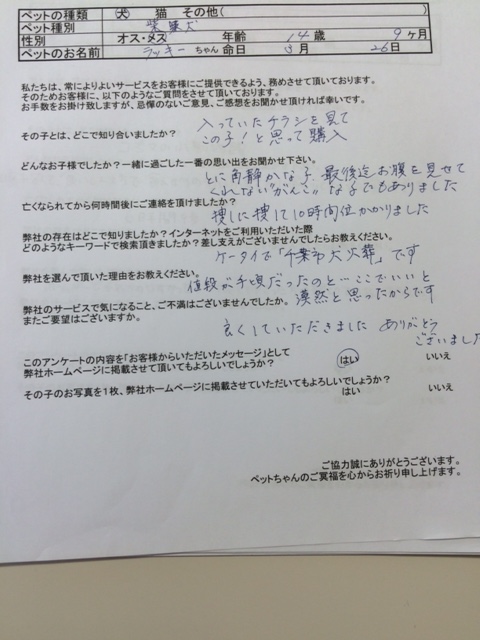 ペットの種類 犬 猫 その他( )
ペット種別 柴雑犬
性別 オス・メス 年齢 14歳 9ヶ月
ペットのお名前 ラッキー ちゃん 命日 3月 26日
私たちは、常によりよいサービスをお客様にご提供できるよう、務めさせて頂いております。
そのためお客様に、以下のようなご質問をさせて頂いております。
お手数をお掛け致しますが、忌憚のないご意見、ご感想をお聞かせ頂ければ幸いです。
入っていたチラシを見て
その子とは、どこで知り合いましたか?
この子!と思って購入
どんなお子様でしたか?一緒に過ごした一番の思い出をお聞かせ下さい。
とに角静かな子、最後迄お腹を見せて
くれない"がんこ"な子でもありました
亡くなられてから何時間後にご連絡を頂けましたか?
捜しに捜して10時間位かかりました
弊社の存在はどこで知りましたか?インターネットをご利用いただいた際
どのようなキーワードで検索頂きましたか?差し支えがございませんでしたらお教えください。
ケータイで「千葉市犬火葬」です
弊社を選んで頂いた理由をお教えください。
値段が手頃だったのと…ここでいいと
漠然と思ったからです
弊社のサービスで気になること、ご不満はございませんでしたか。
またご要望はございますか。
良くしていただきました ありがとう
ございました
このアンケートの内容を「お客様からいただいたメッセージ」として
弊社ホームページに掲載させて頂いてもよろしいでしょうか? はい いいえ
その子のお写真を1枚、弊社ホームページに掲載させていただいてもよろしいでしょうか?
はい いいえ
ご協力誠にありがとうございます。
ペットちゃんのご冥福を心からお祈り申し上げます。